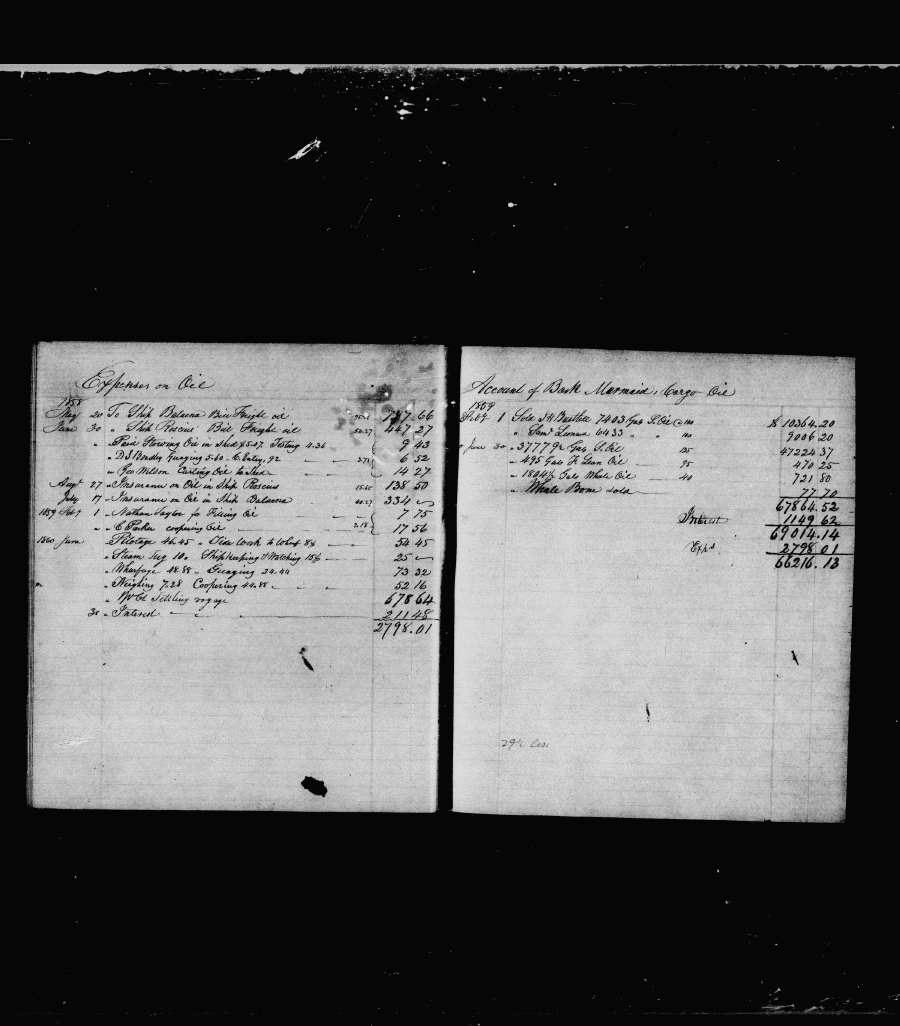 Expenses on Oil
1858
May 20 To Ship Balaena Bill Freight oil 787 66
June 30 " Ship Roscius Bill Freight oil 447 27
" Paid Stowing Oil in Shed $5.07 Testing 4.36 9 43
" D S Guaging 5.60 C Entry .92 6 52
" Geo Wilson Carting Oil to Shed 14 27
Augt 27 " Insurance on Oil in Ship Roscius 138 50
July 17 " Insurance on Oil in Ship Balaena 334 "
1859 Feb 1 " Nathan Taylor for Oil 7 75
" C Parker coopering Oil 2.18 17 56
1860 June " Pilotage 46.45 " 54 45
" Steam Tug 10. Shipkeeping & Watching 15 25 "
" Wharfage 48.88 Guaging 24.44 73 32
" Weighing 7.28 Coopering 44.88 52 16
" Settling voyage 678 64
30 " Interest 211 48
2798.01
Account of Bark Mermaid, Cargo Oil
1859
Feby 1 Sold 7403 Gals S. Oil @ 140 $ 10364.20
" Saml Leonard 6433 " " 140 9006 20
June 30 " 37779½ Gals S. Oil 125 47224.37
" 495 Gals Oil 95 470 25
" 1804½ Gals Whale Oil 40 721 80
" Whale Bone sold 77.70
67864.52
Interest 1149 62
69014.14
Exps 2798 01
66216.13
less